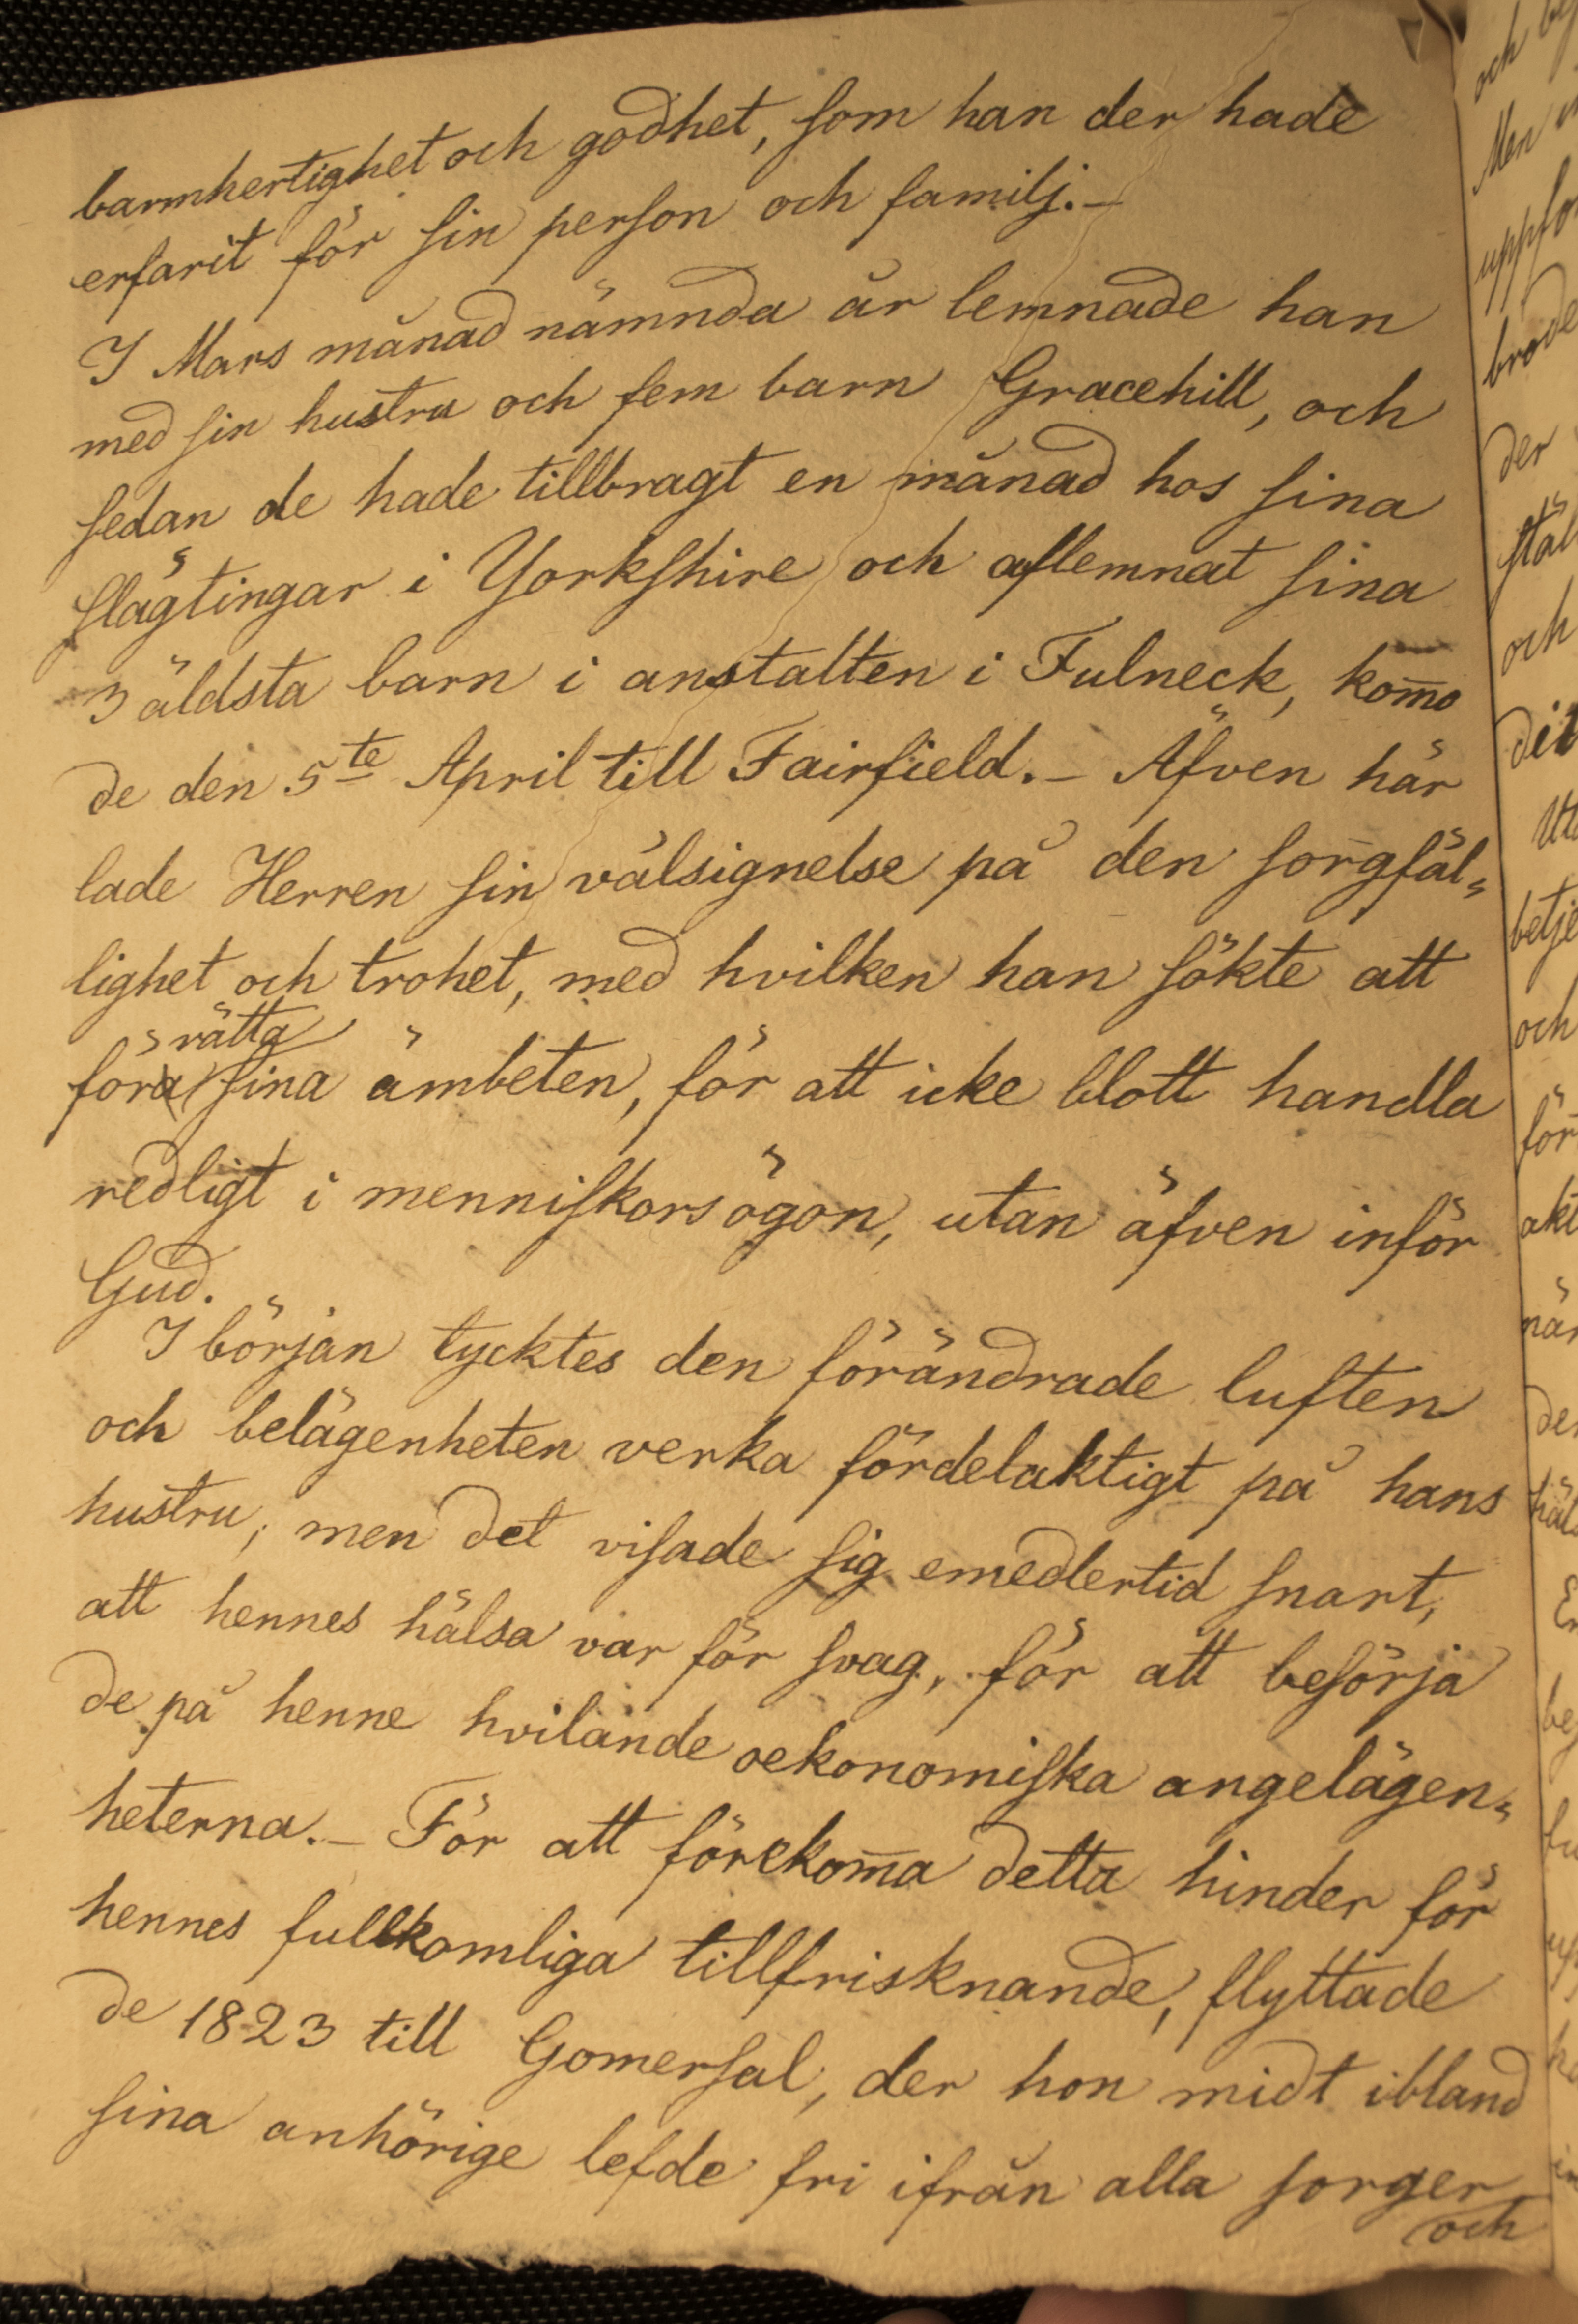 barmhertighet och godhet, som han der hade
erfarit för sin person och familj. –
I Mars månad nämnda år lemnade han
med sin hustru och fem barn Gracehill, och
sedan de hade tillbragt en månad hos sina
slägtingar i Yorkshire och aflemnat sina
3 äldsta barn i anstalten i Fulneck, kom̅o
de den 5te April till Fairfield. – Äfven här
lade Herren sin välsignelse på den sorgfäl„
lighet och trohet, med hvilken han sökte att
rätta
föra sina ämbeten, för att icke blott handla
redligt i menniskors ögon, utan äfven inför
Gud.
I början tycktes den förändrade luften
och belägenheten verka fördelaktigt på hans
hustru; men det visade sig emedlertid snart,
att hennes hälsa var för svag, för att besörja
de på henne hvilande oekonomiska angelägen„
heterna. – För att förekom̅a detta hinder för
hennes fullkomliga tillfrisknande, flyttade
de 1823 till Gomersal, der hon midt ibland
sina anhörige lefde fri ifrån alla sorger
och
och
Men
uppfo
brode
der
stäl
och
det
betje
och
för
akt
när
der
häl